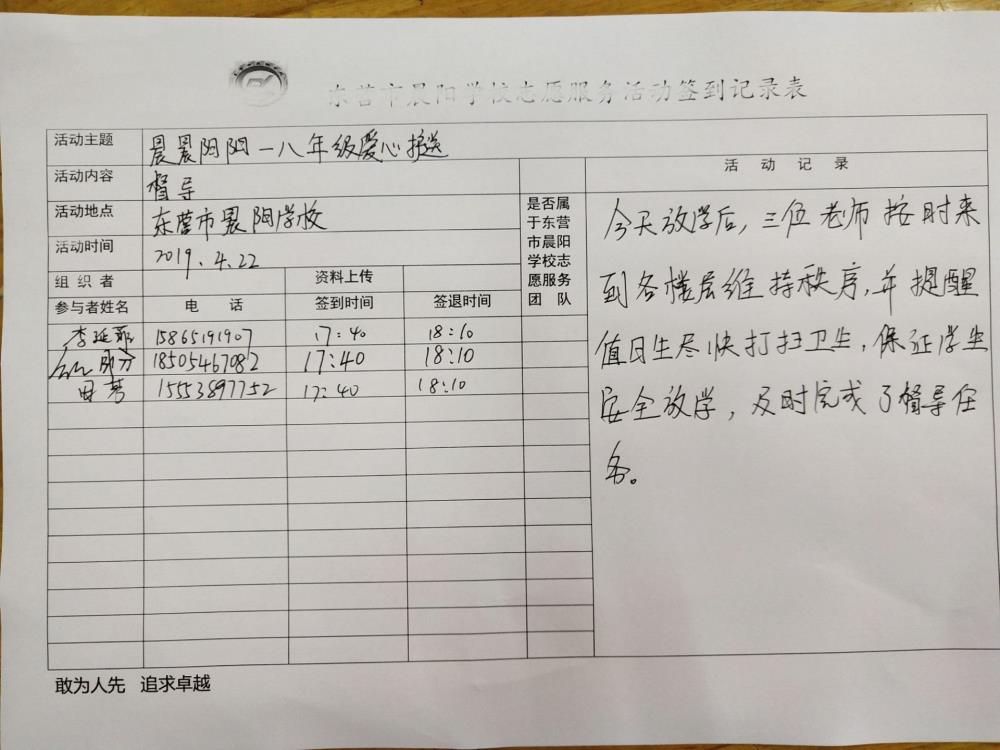 东营市晨阳学校志愿服务活动签到记录表
活动主题 晨晨阳阳一八年级爱心护送
活动内容 督导
活动地点 东营市晨阳学校
活动时间 2019.4.22
组织者 资料上传
参与者姓名 电话 签到时间 签退时间
是否属
于东营
市晨阳
学校志
愿服务
团队
李延 15865191907 17:40 18:10
18505467082 17:40 18:10
15553897752 17:40 18:10
活动记录
今天放学后,三位老师按时来
到各楼层维持秩序,并提醒
值日生尽快打扫卫生,保证学生
安全放学,及时完成了督导任
务。
敢为人先 追求卓越